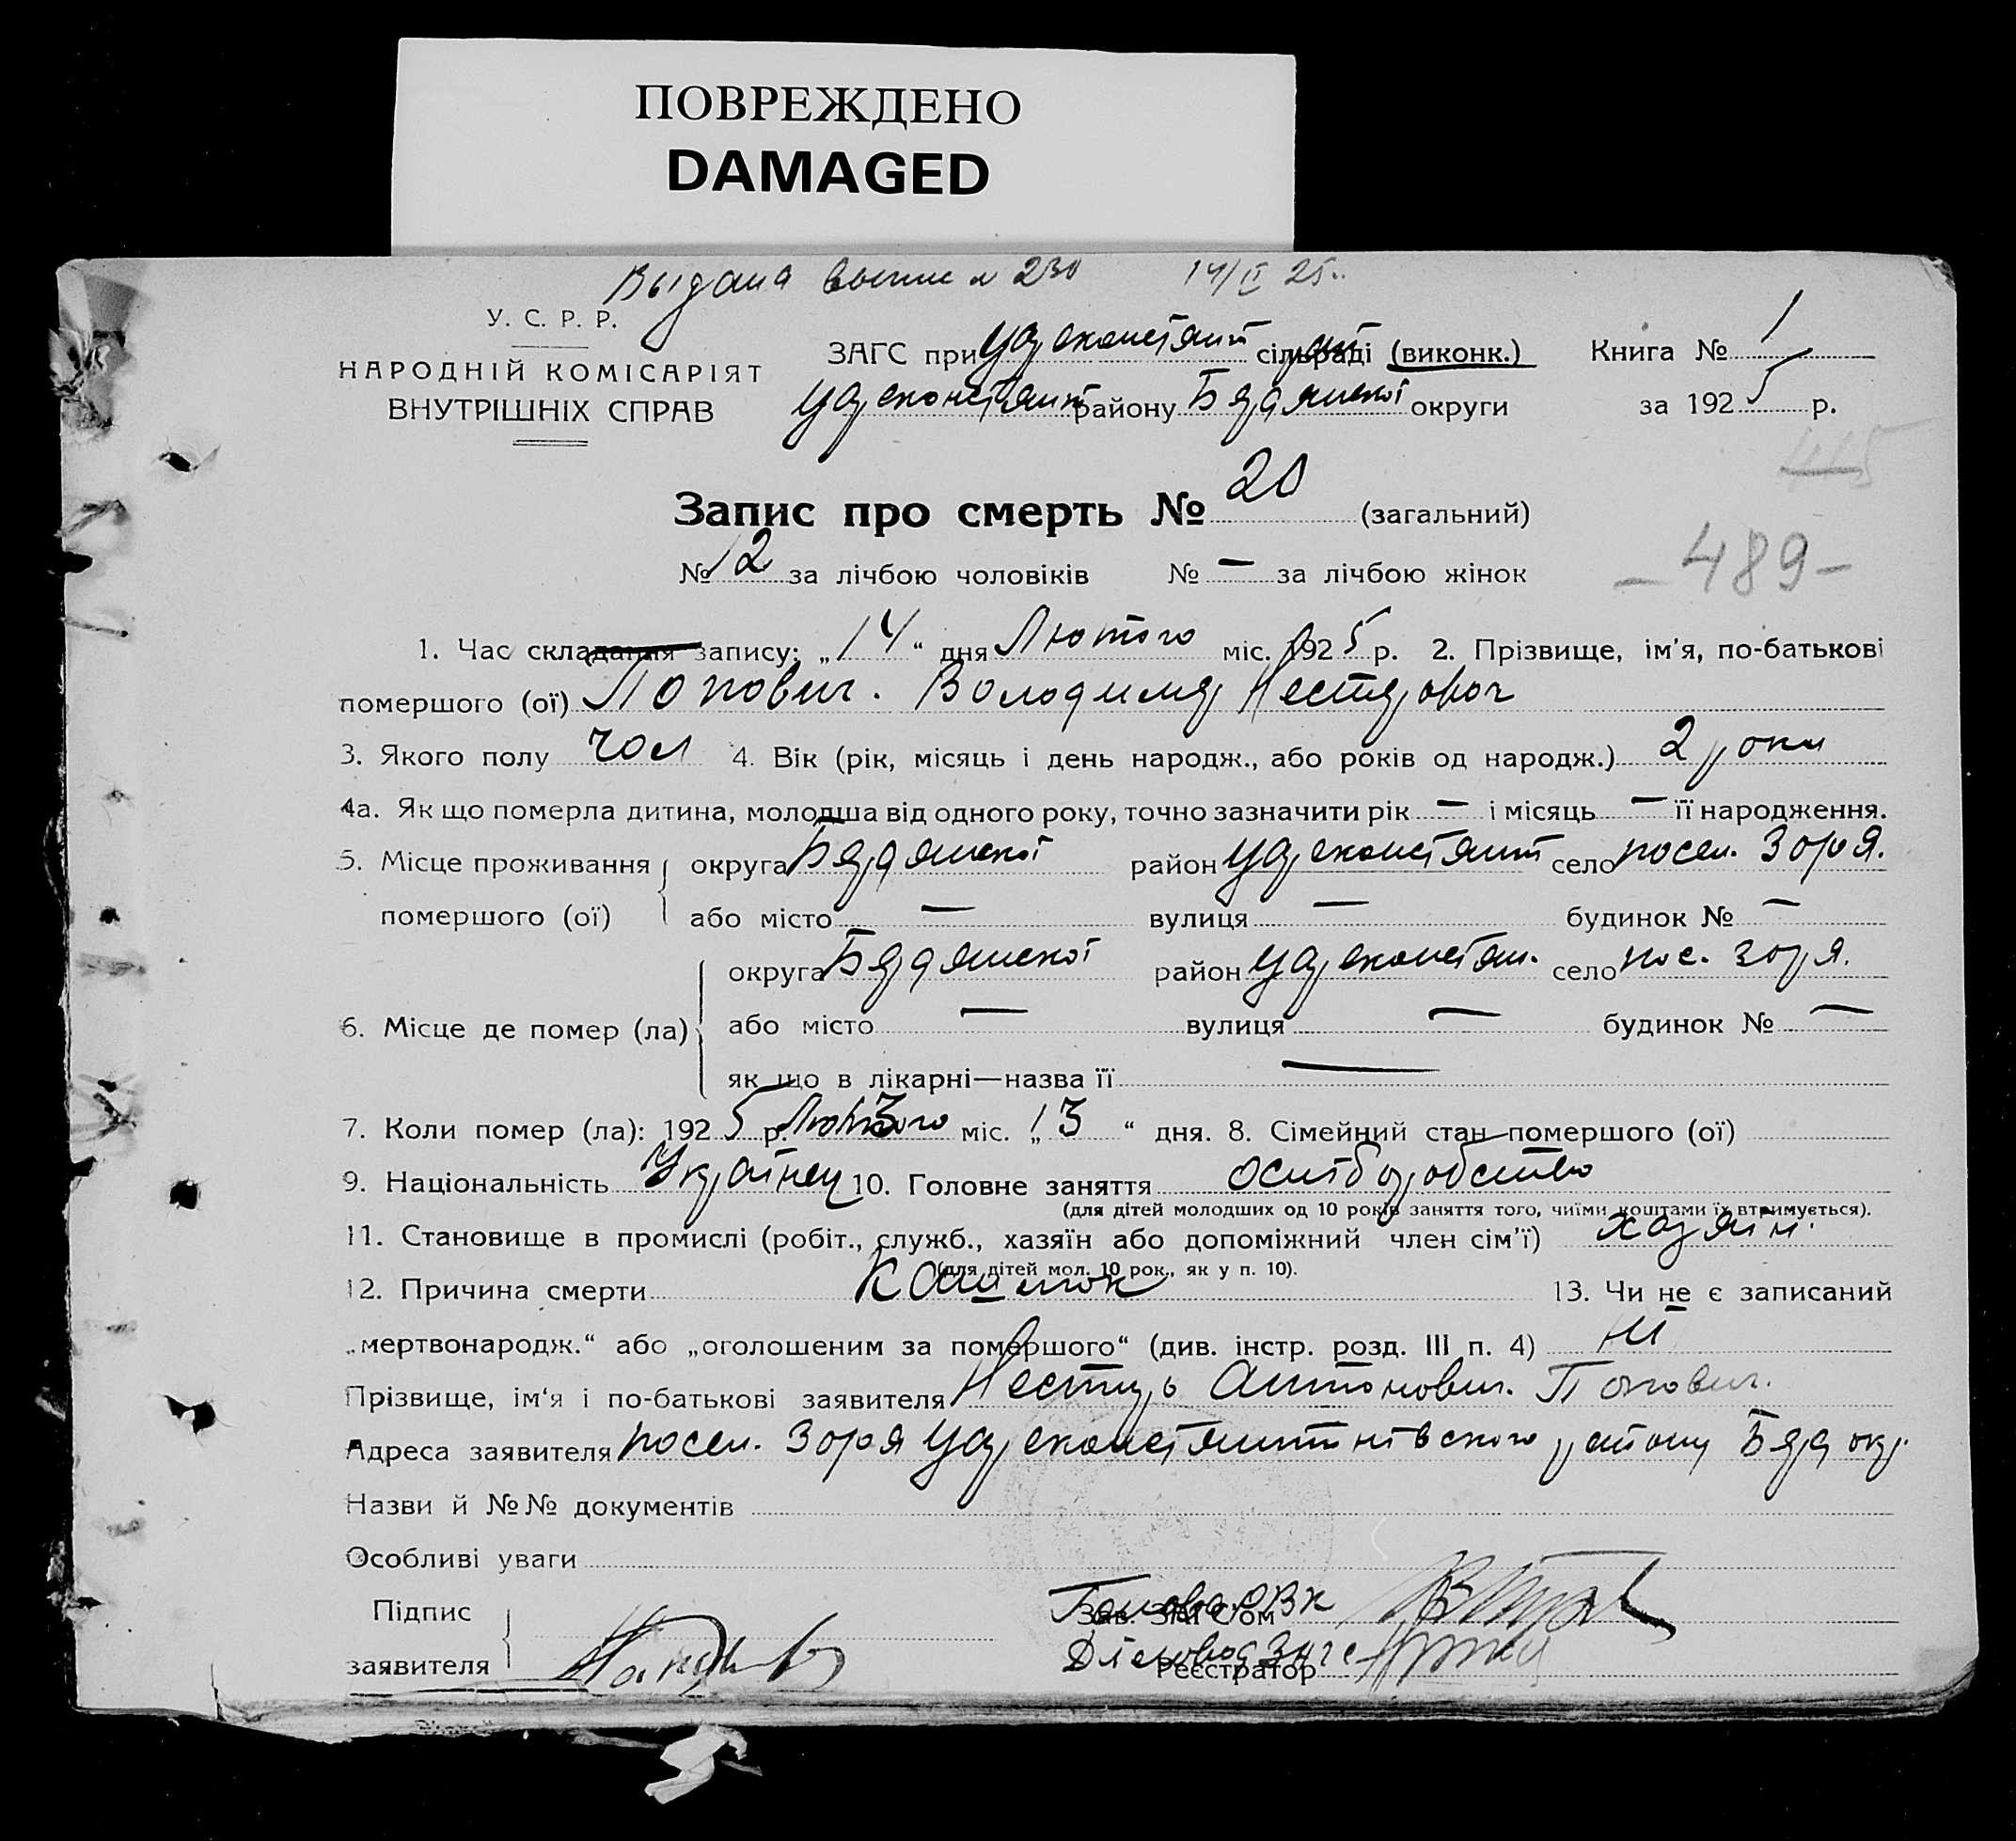 ПОВРЕЖДЕНО
DAMAGED
Выдана выпис № 230 14/II 25
У. С. Р. Р.
НАРОДНІЙ КОМІСАРІЯТ
ВНУТРІШНІХ СПРАВ
ЗАГС при Цареконстянт сільраді (виконк.)
Цареконстянт району Бердянської округи
Книга № 1
за 1925 р.
445
Запис про смерть № 20 (загальний)
№ 12 за лічбою чоловіків № — за лічбою жінок
– 489 –
1. Час складання запису: „14“ дня Лютого міс. 1925 р. 2. Прізвище, ім'я, по-батькові
помершого (ої) Попович. Володимир Нестерович
3. Якого полу чол 4. Вік (рік, місяць і день народж., або років од народж.) 2 роки
4а. Як що померла дитина, молодша від одного року, точно зазначити рік — і місяць — її народження.
5. Місце проживання округа Бердянської район Цареконстянт село посел. Зоря.
помершого (ої) або місто — вулиця — будинок № —
округа Бердянської район Цареконстян. село пос. зоря.
6. Місце де помер (ла) або місто — вулиця — будинок № —
як що в лікарні—назва її —
7. Коли помер (ла): 1925 р. Лютого міс. „13“ дня. 8. Сімейний стан помершого (ої)
9. Національність Українец 10. Головне заняття
(для дітей молодших од 10 років заняття того, чиїми коштами їх втримується).
11. Становище в промислі (робіт., служб., хазяїн або допоміжний член сім'ї) хазяїн.
(для дітей мол. 10 рок., як у п. 10).
12. Причина смерти Кашлюк 13. Чи не є записаний
„мертвонародж.“ або „оголошеним за помершого“ (див. інстр. розд. III п. 4) ні
Прізвище, ім'я і по-батькові заявителя Нестер Антонович. Попович.
Адреса заявителя посел. Зоря Цареконстянтинівського району Берд окр.
Назви й №№ документів
Особливі уваги
Підпис
заявителя
Зав. ЗАГС'ом Голова РВК
Реєстратор Діловод Загс